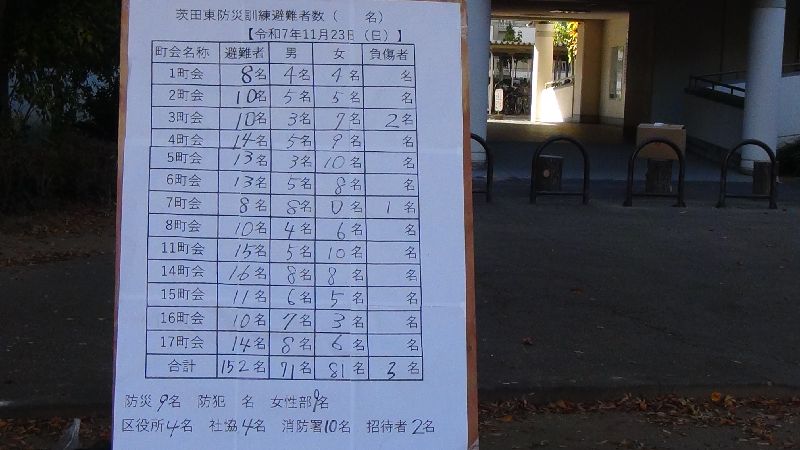 茨田東防災訓練避難者数（　　名）
【令和7年11月23日（日）】
町会名称 避難者 男 女 負傷者
1町会 8名 4名 4名 名
2町会 10名 5名 5名 名
3町会 10名 3名 7名 2名
4町会 14名 5名 9名 名
5町会 13名 3名 10名 名
6町会 13名 5名 8名 名
7町会 8名 8名 0名 1名
8町会 10名 4名 6名 名
11町会 15名 5名 10名 名
14町会 16名 8名 8名 名
15町会 11名 6名 5名 名
16町会 10名 7名 3名 名
17町会 14名 8名 6名 名
合計 152名 71名 81名 3名
防災9名 防犯 名 女性部9名
区役所4名 社協4名 消防署10名 招待者2名